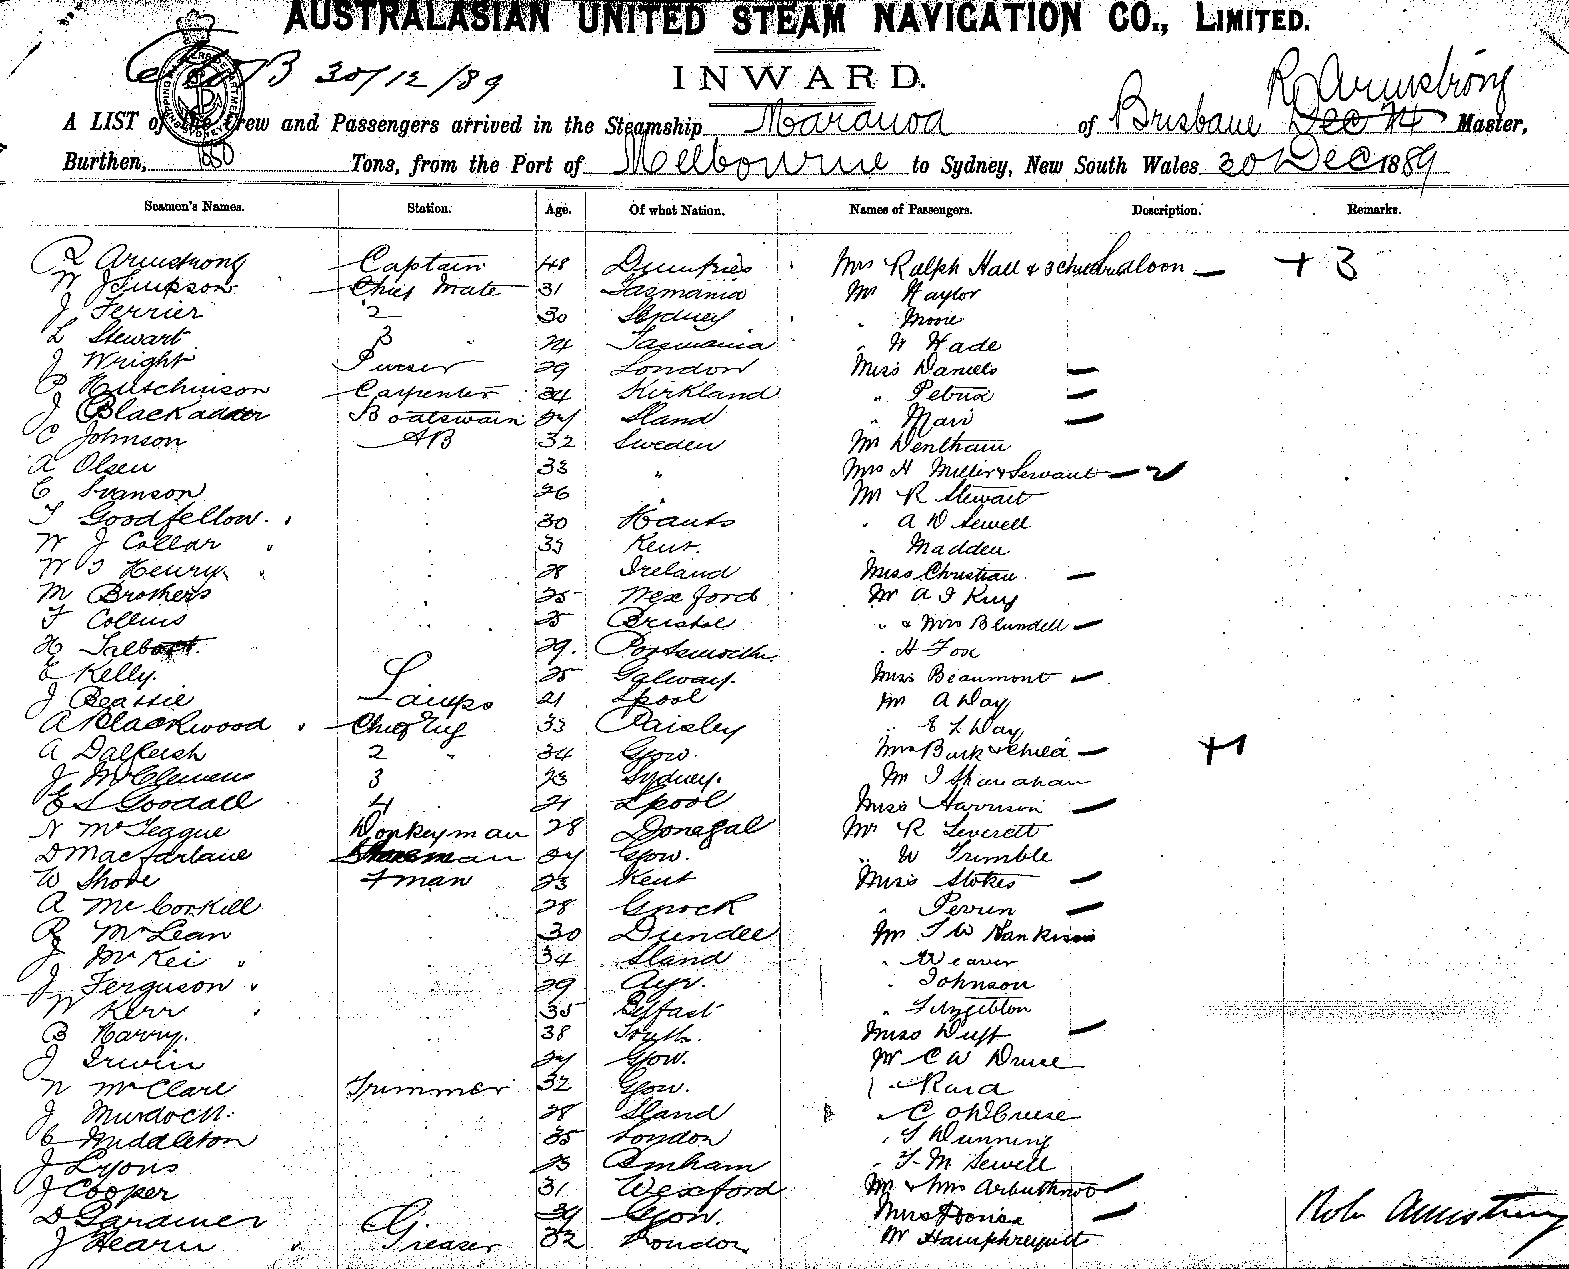 AUSTRALASIAN UNITED STEAM NAVIGATION CO., LIMITED.
30/12/89 INWARD. R Armstrong
A LIST of the Crew and Passengers arrived in the Steamship Maranoa of Brisbane Master,
Burthen, 880 Tons, from the Port of Melbourne to Sydney, New South Wales 30 Dec 1889
Seamen's Names. Station. Age. Of what Nation. Names of Passengers. Description. Remarks.
R Armstrong Captain 48 Dumfries Mrs Ralph Hall & 3 children Saloon — + 3
W J Simpson Chief Mate 31 Tasmania Mr Naylor
J Ferrier 2 " 30 Sydney " Moore
L Stewart 3 " 24 Tasmania " W Wade
J Wright Purser 29 London Miss Daniels —
P Hutchinson Carpenter 34 Kirkland " Petrie —
J Blackadder Boatswain 27 Sland " Mair —
C Johnson AB 32 Sweden Mr Wentham
A Olsen 33 " Mrs H Miller & Servant — 2
C Svanson 26 " Mr R Stewart
T Goodfellow 30 Hants " A W Sewell
W J Collar 33 Kent. " Madden
W J Henry 28 Ireland Miss Christian —
M Brothers 25 Wexford Mr A J King
F Collins 25 Bristol " & Mrs Blundell —
H Talbot 29. Portsmouth " H Fox
E Kelly. 25 Galway. Miss Beaumont —
J Beassie Lamps 21 Lpool Mr A Way
A Blackwood Chief Eng 33 Paisley " E L Way
A Dalgleish 2 " 34 Gow. Mrs Burk & child — +1
J McClemens 3 23 Sydney. Mr J Shanahan
E S Goodall 4 21 Lpool Miss Harrison —
N McTeague Donkeyman 28 Donegal Mr R Leverett
D Macfarlane 27 Gow. " W Trimble
W Shove Fman 23 Kent Miss Stokes —
A McCorkill 28 Gnock " Perrin —
R McLean 30 Dundee Mr T W
J McKei 34 Sland " Weaver
J Ferguson 29 Ayr. " Johnson
W Kerr 35 Belfast " Fitzgibbon
B Harry. 38 South. Miss Duff —
J Irwin 27 Gow. Mr C W Druce
N McClare Trimmer 32 Gow. "
J Murdoch. 28 Sland " C
C Middleton 35 London " T Dunning
J Lyons 23 " F M Sewell
J Cooper 31 Wexford Mr & Mrs Arbuthnot —
D Gardiner G. 34 Gow. —
J Hearn Greaser 32 London Mr
Robt Armstrong